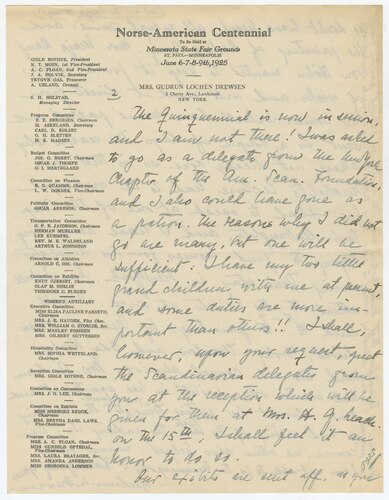 Norse-American Centennial
To Be Held at
Minnesota State Fair Grounds
ST. PAUL—MINNEAPOLIS
June 6-7-8-9th, 1925
GISLE BOTHNE, President
N. T. MOEN, 1st Vice-President
A. C. FLOAN, 2nd Vice-President
J. A. HOLVIK, Secretary
TRYGVE OAS, Treasurer
A. UELAND, Counsel
S. H. HOLSTAD,
Managing Director
MRS. GUDRUN LOCHEN DREWSEN
5 Cherry Ave., Larchmont
NEW YORK
Program Committee
H. ASKELAND, Secretary
CARL D. KOLSET
O. H. SLETTEN
H. K. MADSEN
Budget Committee
JOS. G. NORBY, Chairman
OSCAR J. THORPE
O. I. HERTSGAARD
Committee on Finance
E. G. QUAMME, Chairman
L. W. GORDER, Vice-Chairman
Publicity Committee
OSCAR ARNESON, Chairman
Transportation Committee
O. P. B. JACOBSON, Chairman
HERMAN MUELLER
LEE KUEMPEL
REV. M. E. WALDELAND
ARTHUR L. JOHNSTON
Committee on Athletics
ARNOLD C. OSS, Chairman
Committee on Exhibits
KNUT GJERSET, Chairman
OLAF M. NORLIE
THEODORE C. BLEGEN
WOMEN'S AUXILIARY
Executive Committee
MISS ELISA PAULINE FARSETH,
Chairman
MRS. WILLIAM O. STORLIE, Sec.
MRS. MANLEY FOSSEEN
MRS. GILBERT GUTTERSEN
Hospitality Committee
MRS. SOPHIA WETTELAND,
Chairman
Reception Committee
MRS. GISLE BOTHNE, Chairman
Committee on Concessions
MRS. J. O. LEE, Chairman
Committee on Exhibits
MISS INGEBORG RODUE,
Chairman
MRS. BERTHA DAHL LAWS,
Vice-Chairman
Program Committee
MRS. A. C. FLOAN, Chairman
MISS GUNHILD OPTEDAL,
Vice-Chairman
MRS. LAURA BRATAGER, Sec.
MRS. AMANDA ANDERSON
MISS GEORGINA LOMMEN
2
The Quinquennial is now in session
and I am not there! I was asked
to go as a delegate from the New York
Chapter of the Am. Scan. Foundation
and I also could have gone as
a patron. The reasons why I did not
go are many, but one will be
sufficient: I have my two little
grand children with me at present
and some duties are more im-
portant than others!! I shall,
however, upon your request, greet
the Scandinavian delegates from
you at the reception which will be
given for them at Mrs. H. G. Leach
on the 15th, I shall feel it an
honor to do so.
Our exibits are sent off, as you